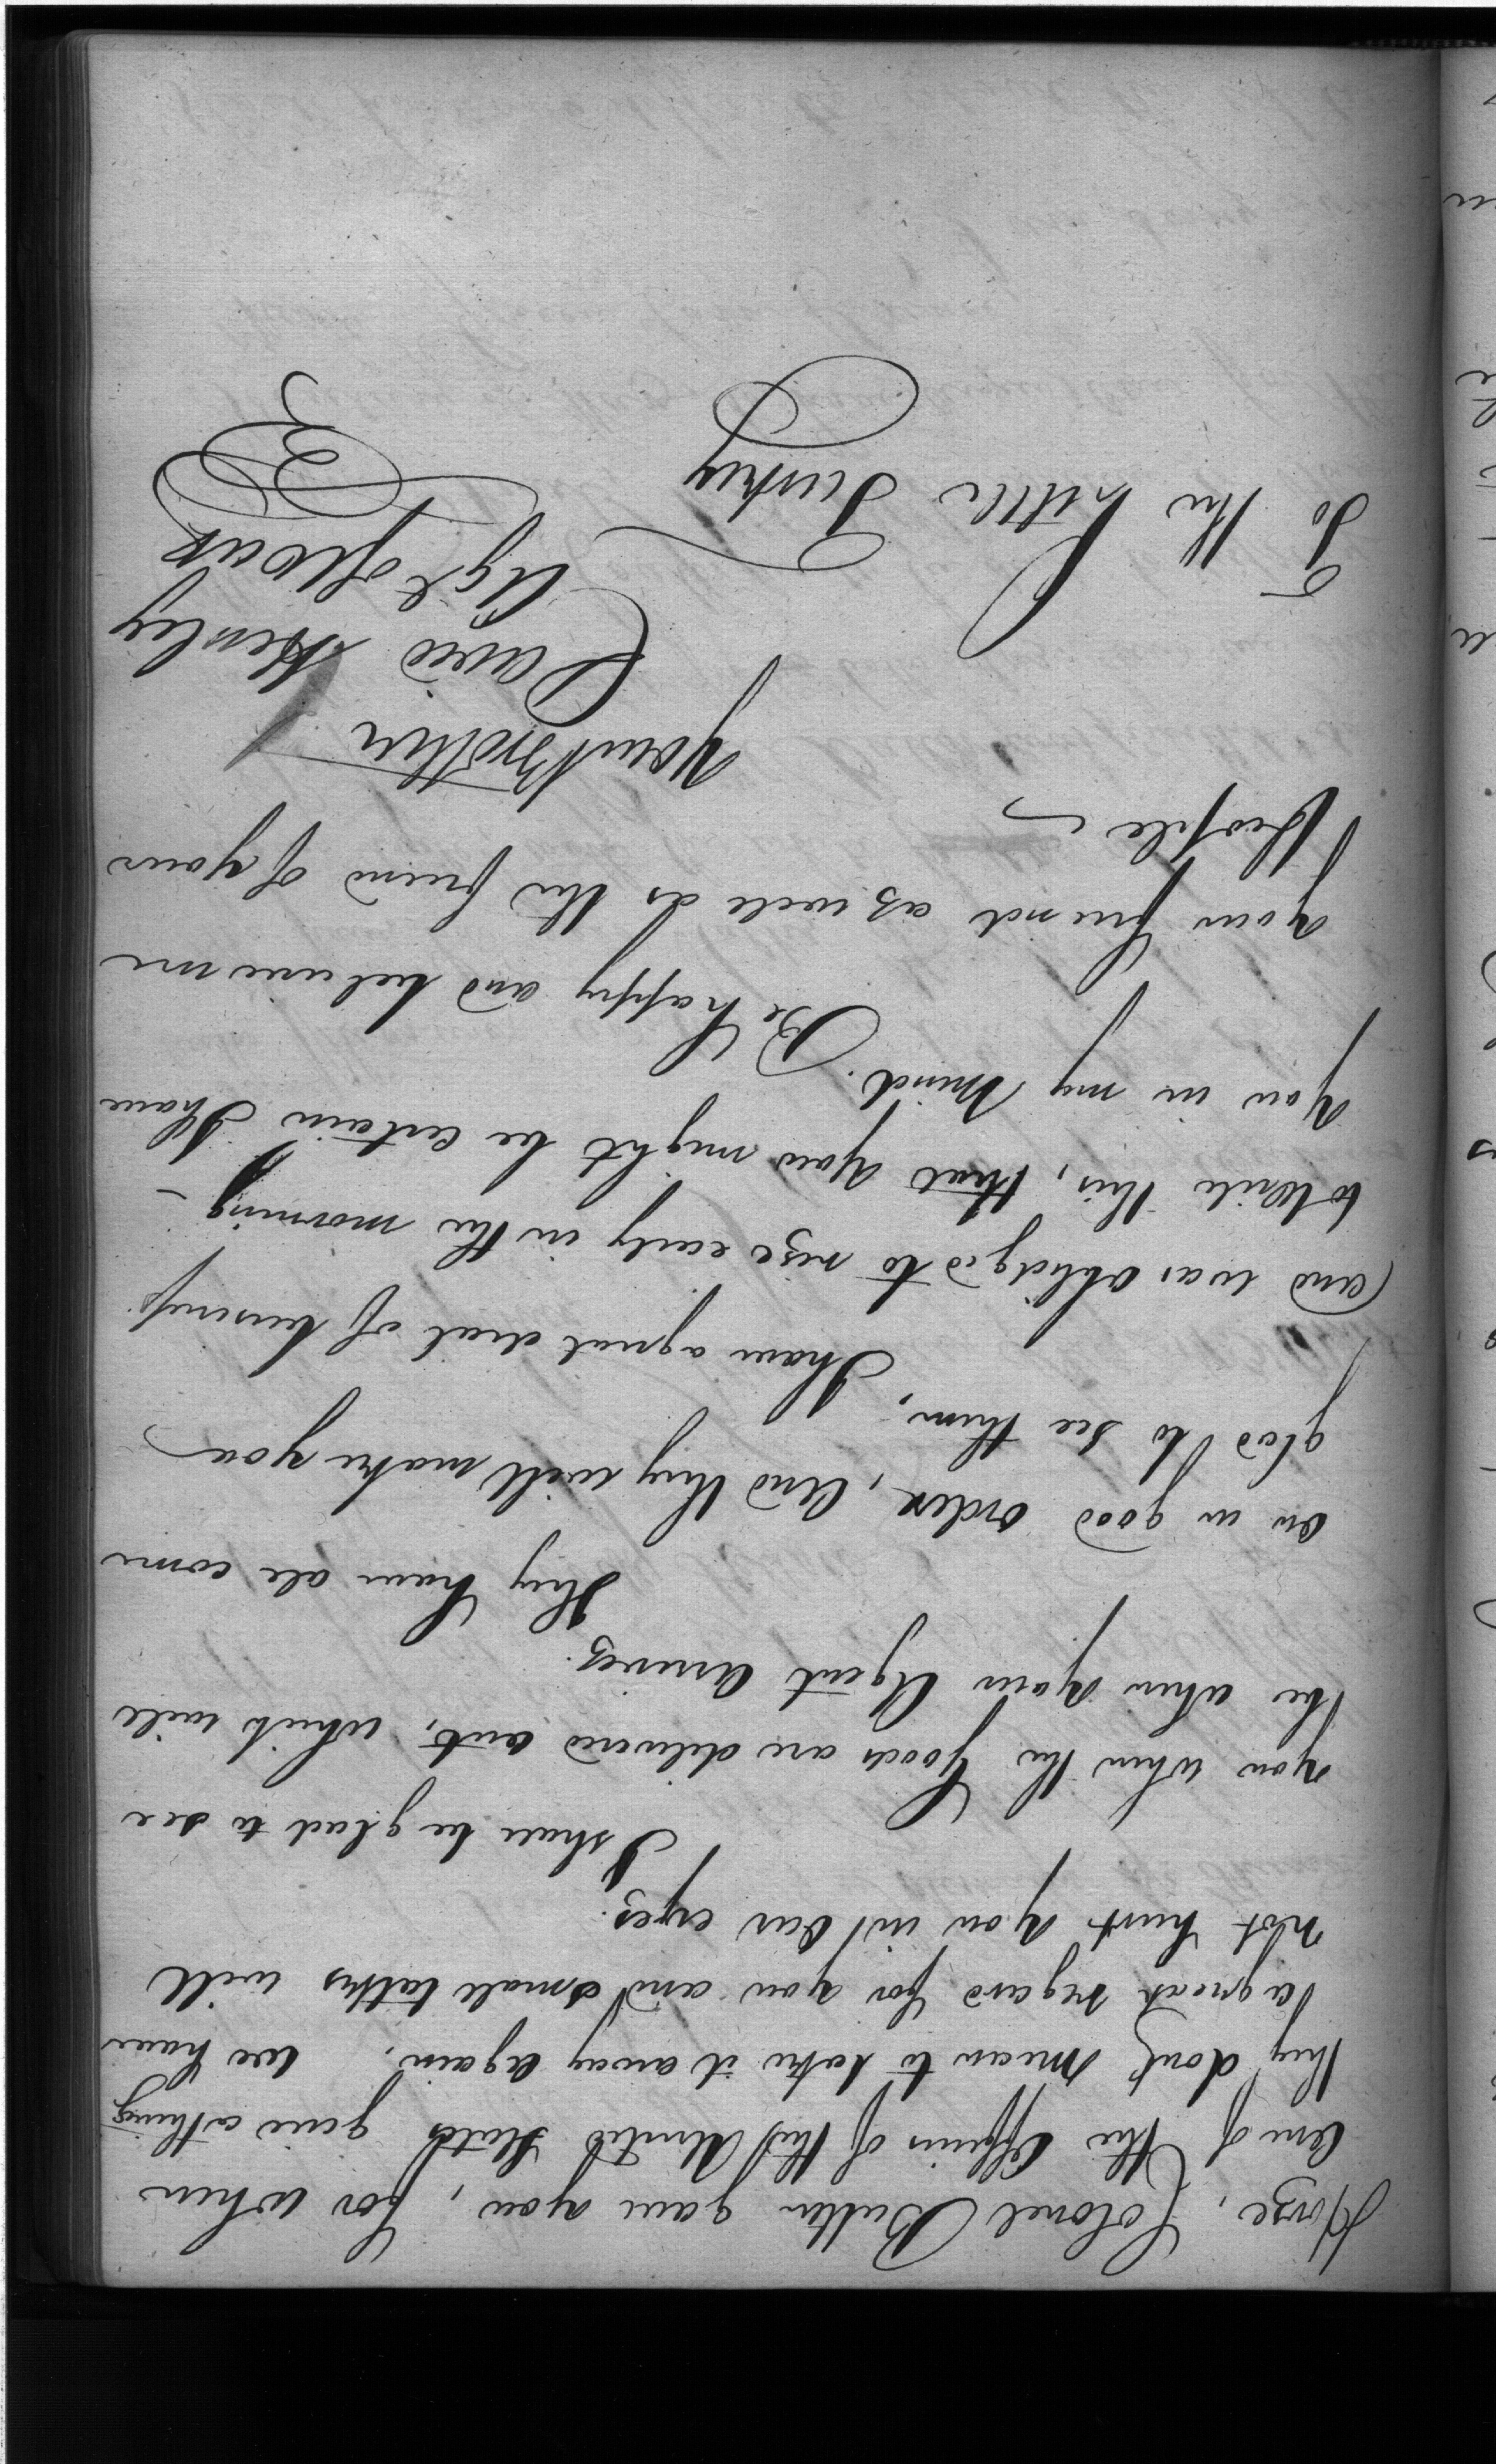 Horse, Colonel Butler gave you, for when
any of the Officers of the United States give a thing
they dont mean to take it away again. We have
a great regard for you and small talks will
not hurt you in our eyes.
I shall be glad to see
you when the Goods are delivered out, which will
be when your Agent arrives.
They have all come
on in good order, and they will make you
glad to see them, I have a great deal of business
and was obliged to rise early in the morning
to write this, that you might be certain I have
you in my mind. Be happy and believe me
your friend as well as the friend of your
People
Your Brother
David Henley
Agt of War
To the Little Turkey